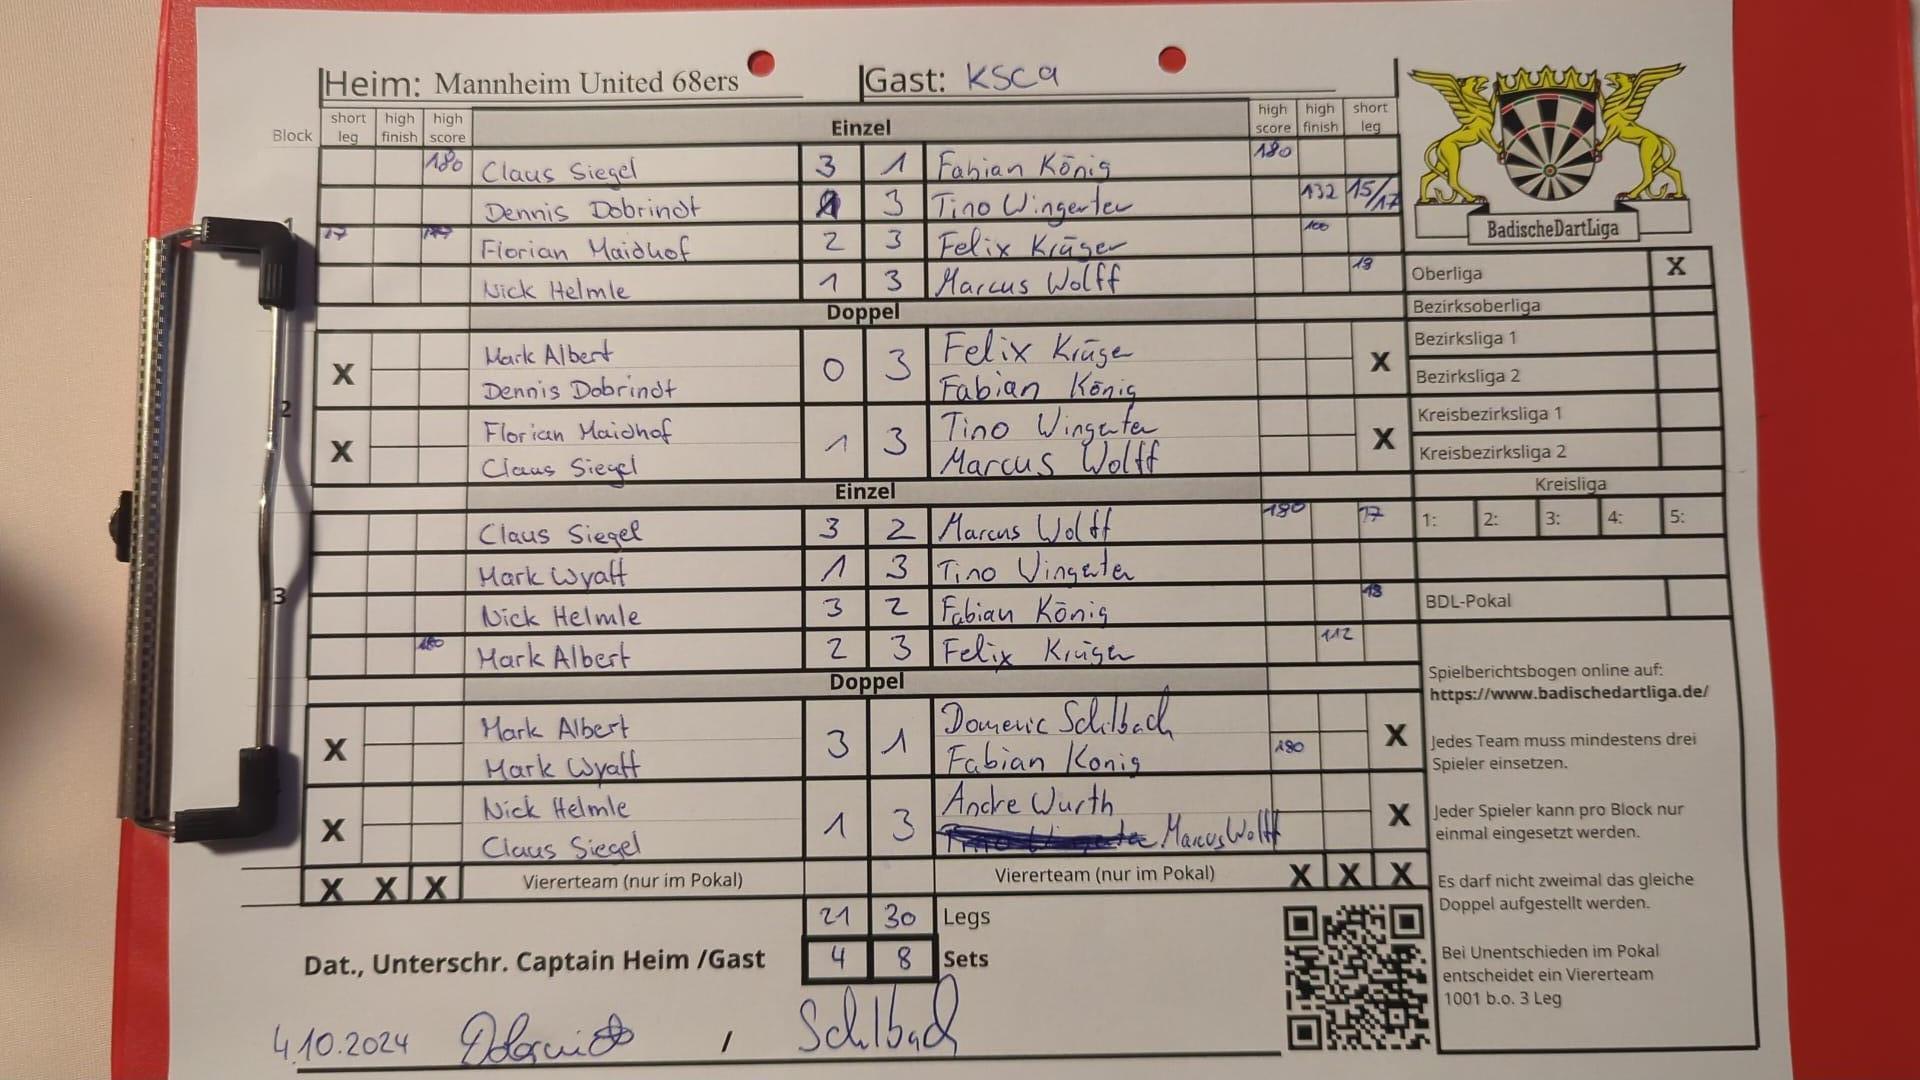 Heim: Mannheim United 68ers Gast: KSC9
Block short leg high finish high score Einzel high score high finish short leg
180 Claus Siegel 3 1 Fabian König 180
Dennis Dobrindt 3 Tino Wingerter 132 15/17
17 Florian Maidhof 2 3 Felix Krüger 100
Nick Helmle 1 3 Marcus Wolff 18
Doppel
X Mark Albert 0 3 Felix Krüger X
Dennis Dobrindt Fabian König
X Florian Maidhof 1 3 Tino Wingerter X
Claus Siegel Marcus Wolff
Einzel
Claus Siegel 3 2 Marcus Wolff 180 17
Mark Wyatt 1 3 Tino Wingerter
Nick Helmle 3 2 Fabian König 18
180 Mark Albert 2 3 Felix Krüger 112
Doppel
X Mark Albert 3 1 Domenic Schilbach X
Mark Wyatt Fabian König 180
X Nick Helmle 1 3 Andre Wurth X
Claus Siegel Marcus Wolff
X X X Viererteam (nur im Pokal) Viererteam (nur im Pokal) X X X
21 30 Legs
Dat., Unterschr. Captain Heim /Gast 4 8 Sets
4.10.2024 / Schilbach
2
3
BadischeDartLiga
Oberliga X
Bezirksoberliga
Bezirksliga 1
Bezirksliga 2
Kreisbezirksliga 1
Kreisbezirksliga 2
Kreisliga
1: 2: 3: 4: 5:
BDL-Pokal
Spielberichtsbogen online auf:
https://www.badischedartliga.de/
Jedes Team muss mindestens drei
Spieler einsetzen.
Jeder Spieler kann pro Block nur
einmal eingesetzt werden.
Es darf nicht zweimal das gleiche
Doppel aufgestellt werden.
Bei Unentschieden im Pokal
entscheidet ein Viererteam
1001 b.o. 3 Leg